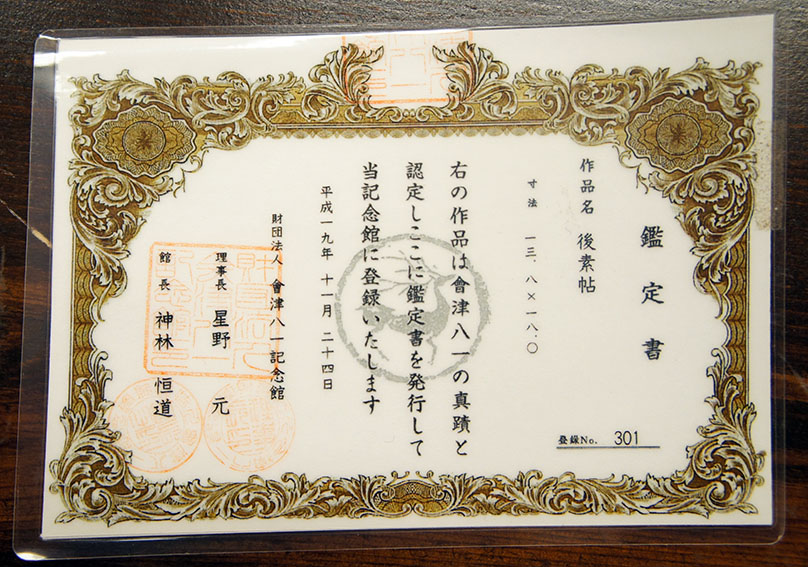 鑑定書
作品名 後素帖
寸法 一三.八×一八.〇
登録No. 301
右の作品は會津八一の真蹟と
認定しここに鑑定書を発行して
当記念館に登録いたします
平成一九年 十一月 二十四日
財団法人 會津八一記念館
理事長 星野 元
館長 神林 恒道